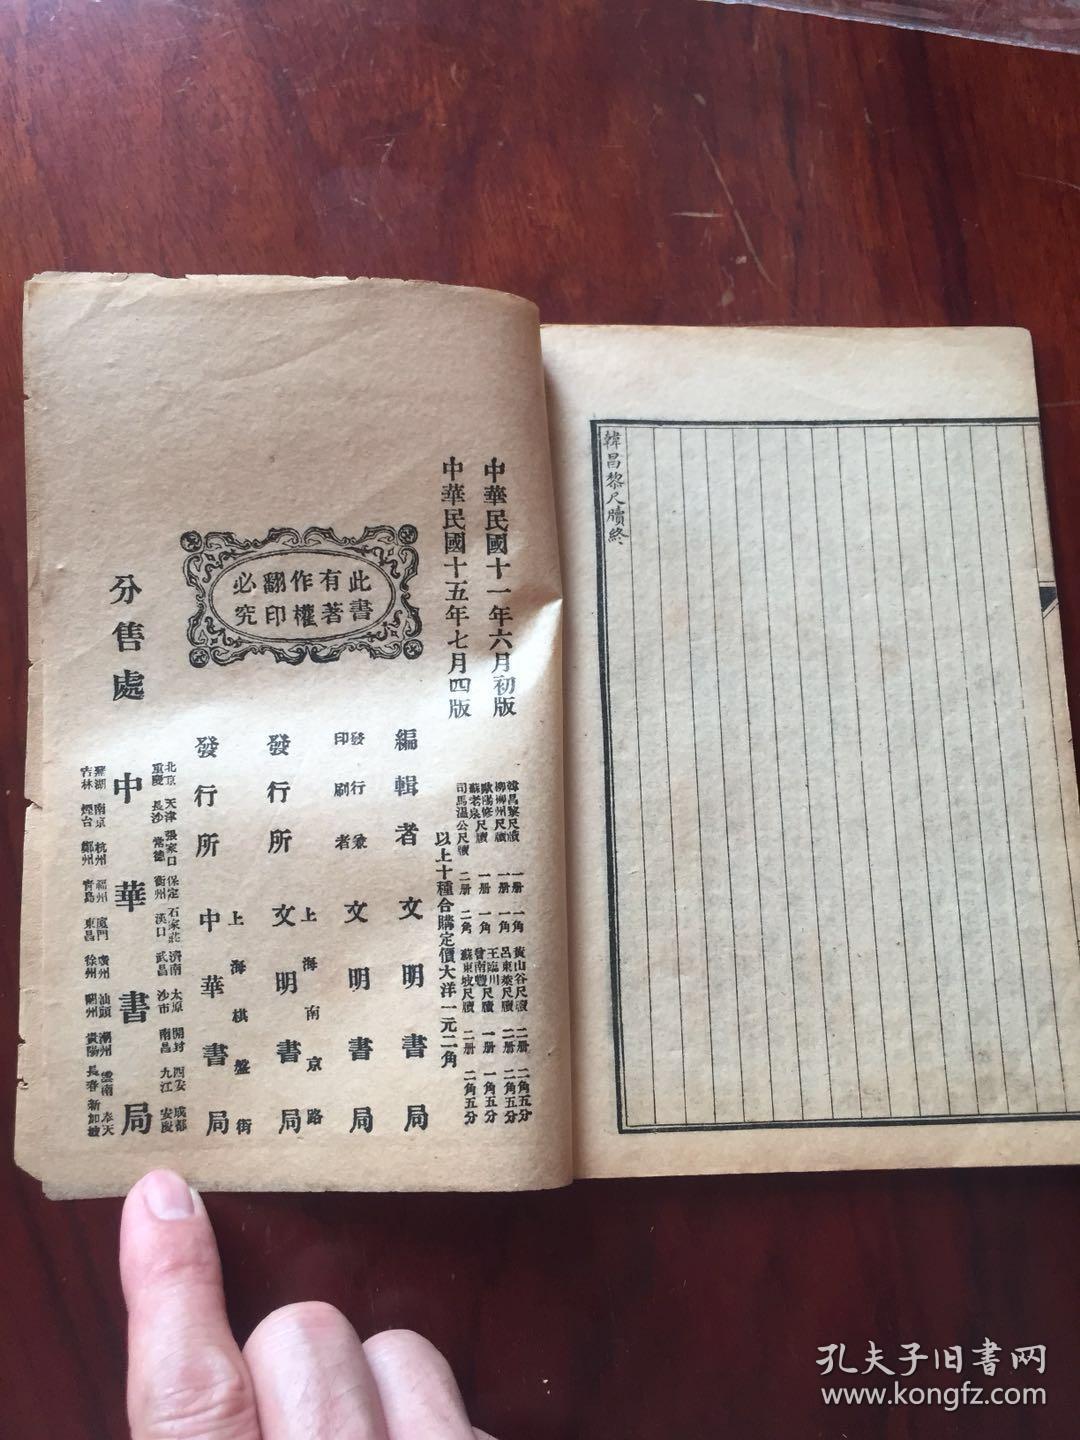 韓昌黎尺牘終
中華民國十一年六月初版
中華民國十五年七月四版
韓昌黎尺牘 一册 一角
柳柳州尺牘 一册 一角
歐陽修尺牘 一册 一角
蘇老泉尺牘
司馬温公尺牘 二册 二角
黃山谷尺牘 二册 二角五分
呂東萊尺牘 二册 二角五分
王臨川尺牘 一册 一角五分
曾南豐尺牘
蘇東坡尺牘 二册 二角五分
以上十種合購定價大洋一元二角
此書有著作權翻印必究
編輯者 文明書局
發行兼印刷者 文明書局
上海南京路
發行所 文明書局
上海棋盤街
發行所 中華書局
分售處
北京 天津 張家口 保定 石家莊 濟南 太原 開封 西安 成都
重慶 長沙 常德 衡州 漢口 武昌 沙市 南昌 九江 安慶
中華書局
蕪湖 南京 杭州 福州 廈門 廣州 汕頭 潮州 雲南 奉天
吉林 煙台 鄭州 青島 東昌 徐州 蘭州 貴陽 長春 新加坡
孔夫子旧書网
www.kongfz.com